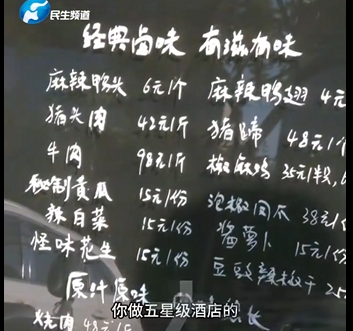 民生频道
经典卤味 有滋有味
麻辣鸭头 6元1个 麻辣鸭翅 4元
猪头肉 42元1斤 猪蹄 48元1个
牛肉 98元1斤 椒麻鸡 35元1半
秘制黄瓜 15元1份 泡椒凤爪 38元1份
辣白菜 15元1份 酱萝卜 15元1份
怪味花生 15元1份 豆豉辣椒干 25
原汁原味
烧肉 48元1斤
你做五星级酒店的